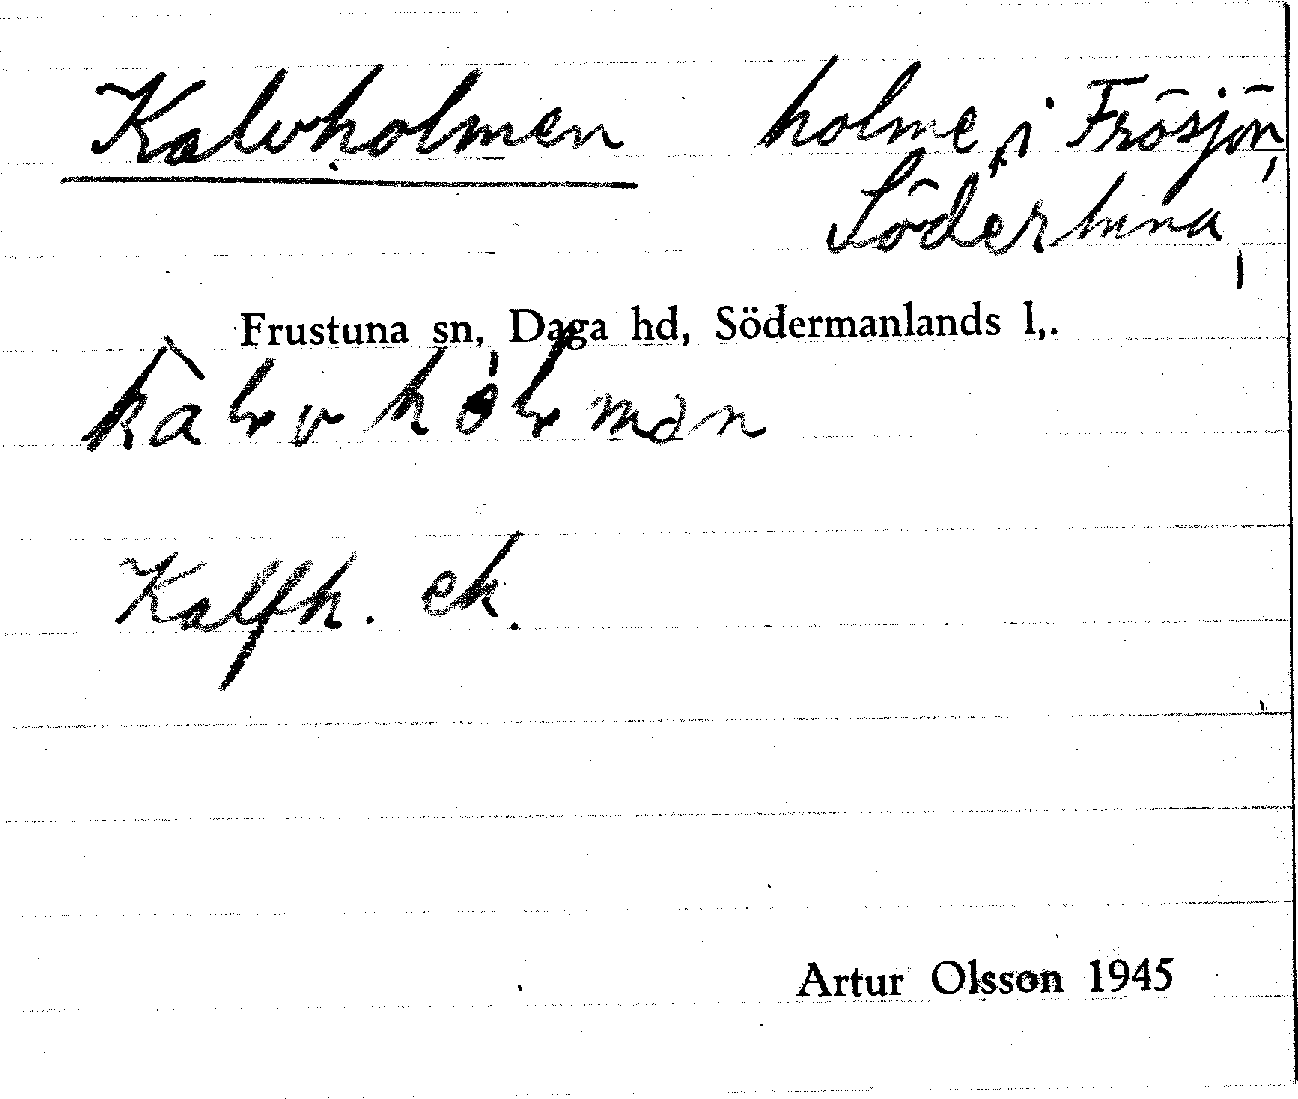 Kalvholmen holme i Frösjön,
Södertuna,
Frustuna sn, Daga hd, Södermanlands l,.
Kalfh. ek.
Artur Olsson 1945